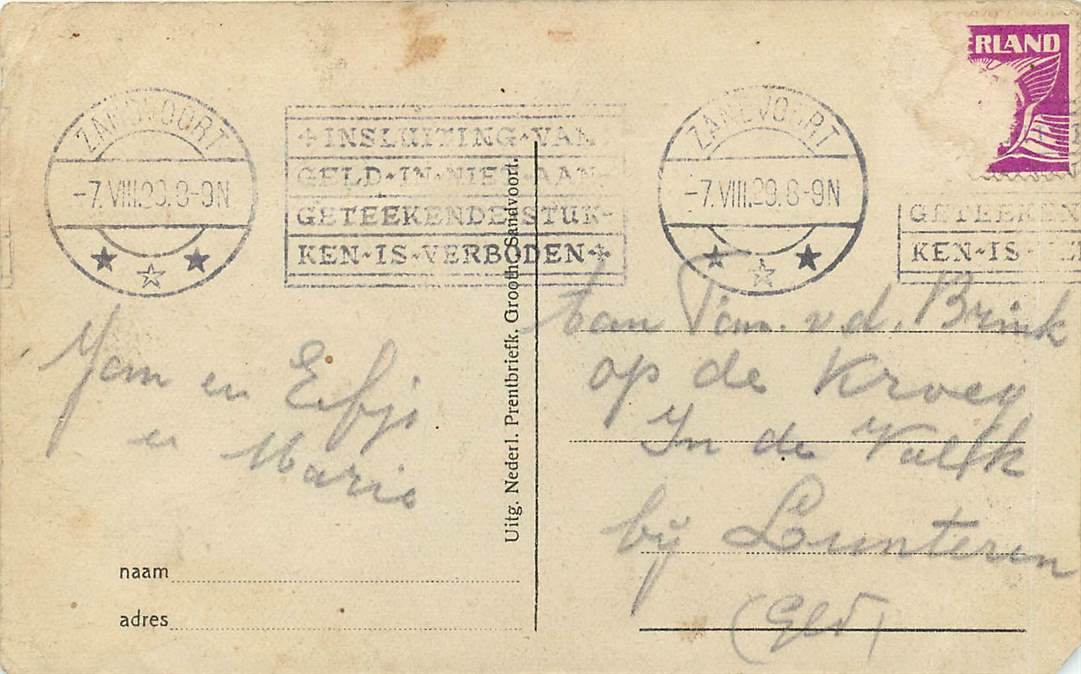 ERLAND
ZANDVOORT
-7.VIII.29.8-9N
INSLUITING VAN
GELD IN NIET AAN-
GETEEKENDE STUK-
KEN IS VERBODEN
ZANDVOORT
-7.VIII.29.8-9N
GETEEKEN
KEN IS
Uitg. Nederl. Prentbriefk. Grooth. Sandvoort.
Jan en Eefje
en Marie
Aan Fam. v.d. Brink
op de Kroeg
In de Valk
bij Lunteren
(Gld)
naam
adres